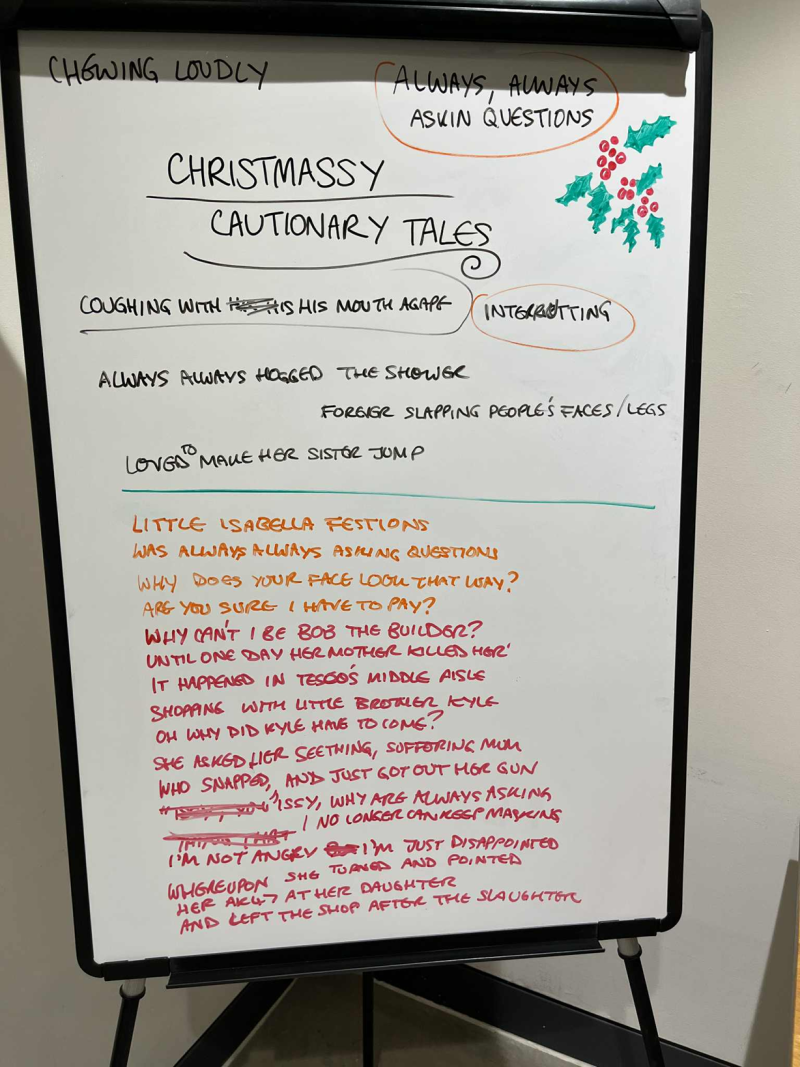 CHEWING LOUDLY
ALWAYS, ALWAYS
ASKIN QUESTIONS
CHRISTMASSY
CAUTIONARY TALES
COUGHING WITH IS HIS MOUTH AGAPE
INTERRUTTING
ALWAYS ALWAYS HOGGED THE SHOWER
FOREVER SLAPPING PEOPLE'S FACES/LEGS
LOVED TO MAKE HER SISTER JUMP
LITTLE ISABELLA FESTIONS
WAS ALWAYS ALWAYS ASKING QUESTIONS
WHY DOES YOUR FACE LOOK THAT WAY?
ARE YOU SURE I HAVE TO PAY?
WHY CAN'T I BE BOB THE BUILDER?
UNTIL ONE DAY HER MOTHER KILLED HER'
IT HAPPENED IN TESCO'S MIDDLE AISLE
SHOPPING WITH LITTLE BROTHER KYLE
OH WHY DID KYLE HAVE TO COME?
SHE ASKED HER SEETHING, SUFFERING MUM
WHO SNAPPED, AND JUST GOT OUT HER GUN
'ISSY, WHY ARE ALWAYS ASKING
I NO LONGER CAN KEEP MASKING
I'M NOT ANGRY I'M JUST DISAPPOINTED
WHEREUPON SHE TURNED AND POINTED
HER AK47 AT HER DAUGHTER
AND LEFT THE SHOP AFTER THE SLAUGHTER